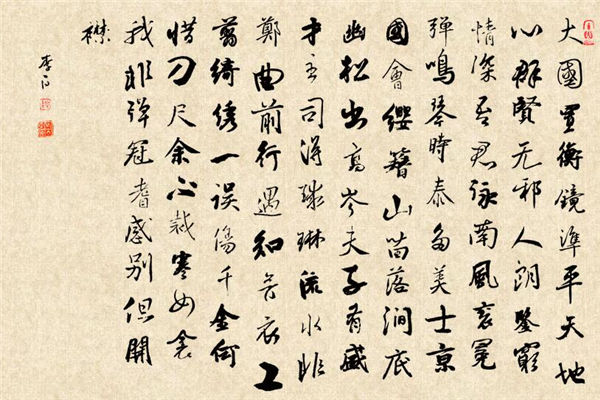 大國置衡鏡準平天地
心群賢无邪人朗鑒窮
情深吾君詠南風袞冕
弹鳴琴時泰多美士京
國會纓簪山苗落澗底
幽松出高岑夫子有盛
才主司得球琳流水非
鄭曲前行遇知音衣工
翦綺绣一误傷千金何
惜刀尺余不裁寒女衾
我非弹冠者感别但開
襟
李白